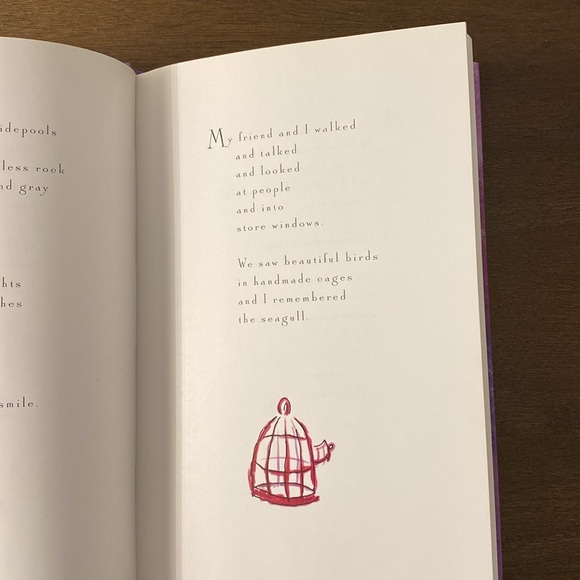 idepools
less rock
nd gray
hts
hes
smile.
My friend and I walked
and talked
and looked
at people
and into
store windows.
We saw beautiful birds
in handmade cages
and I remembered
the seagull.